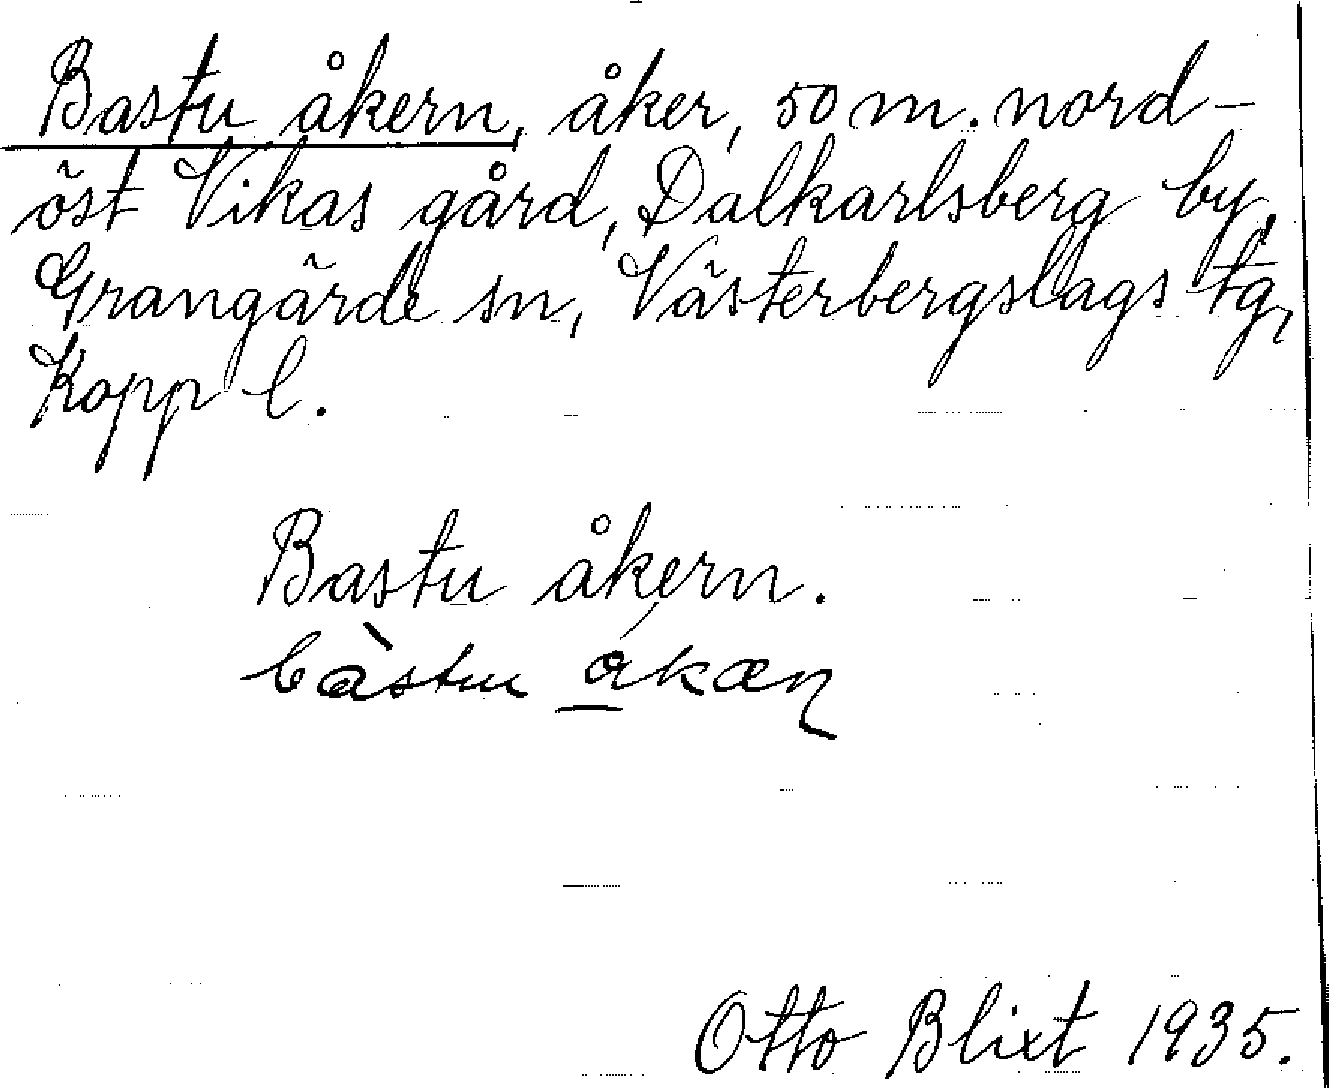 Bastu åkern, åker, 50 m. nord-
öst Vikas gård, Dalkarlsberg by,
Grangärde sn, Västerbergslags tg,
Kopp l.
Bastu åkern.
bàstu åkæn
Otto Blixt 1935.